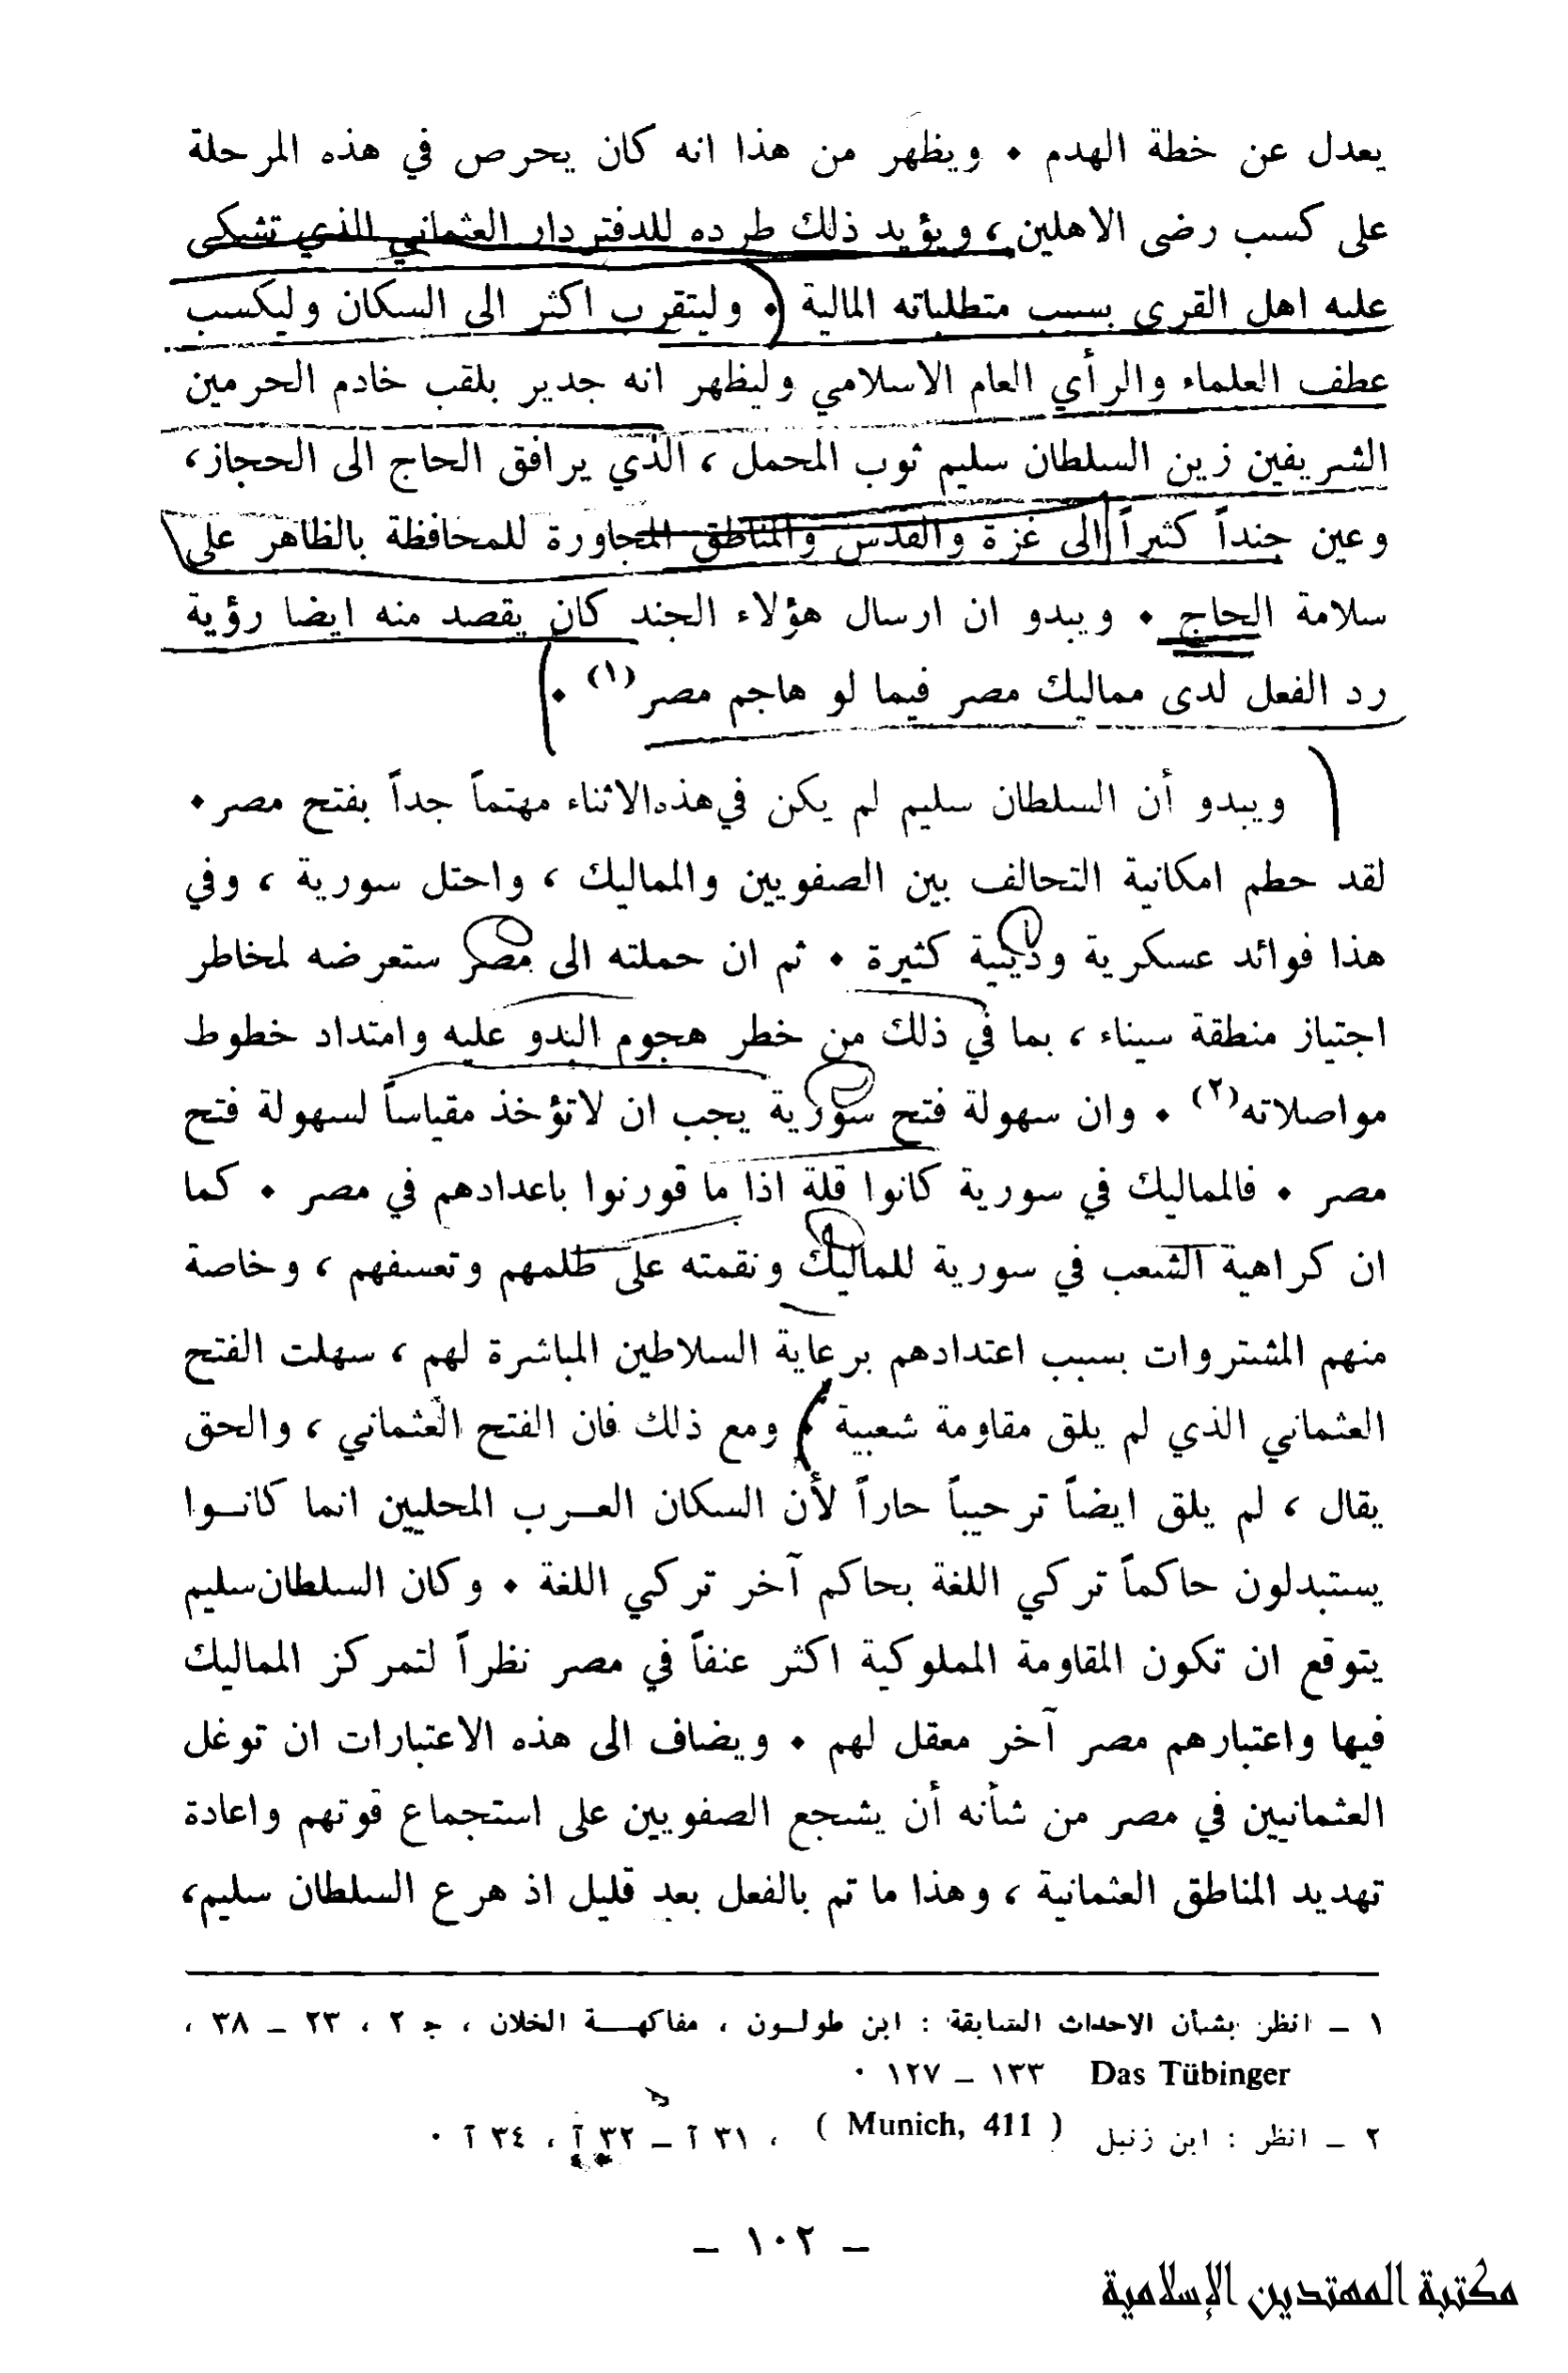 يعدل عن خطة الهدم ٠ ويظهر من هذا انه كان يحرص في هذه المرحلة
على كسب رضى الاهلين ، ويؤيد ذلك طرده للدفتردار العثماني الذي تشكى
عليه اهل القرى بسبب متطلباته المالية ٠ وليتقرب اكثر الى السكان وليكسب
عطف العلماء والرأي العام الاسلامي وليظهر انه جدير بلقب خادم الحرمين
الشريفين زين السلطان سليم ثوب المحمل ، الذي يرافق الحاج الى الحجاز ،
وعين جنداً كثيراً الى غزة والقدس والمناطق المجاورة للمحافظة بالظاهر على
سلامة الحاج ٠ ويبدو ان ارسال هؤلاء الجند كان يقصد منه ايضا رؤية
رد الفعل لدى مماليك مصر فيما لو هاجم مصر (١) ٠
ويبدو أن السلطان سليم لم يكن في هذه الاثناء مهتماً جداً بفتح مصر ٠
لقد حطم امكانية التحالف بين الصفويين والمماليك ، واحتل سورية ، وفي
هذا فوائد عسكرية ودينية كثيرة ٠ ثم ان حملته الى مصر ستعرضه لمخاطر
اجتياز منطقة سيناء ، بما في ذلك من خطر هجوم البدو عليه وامتداد خطوط
مواصلاته (٢) ٠ وان سهولة فتح سورية يجب ان لاتؤخذ مقياساً لسهولة فتح
مصر ٠ فالمماليك في سورية كانوا قلة اذا ما قورنوا باعدادهم في مصر ٠ كما
ان كراهية الشعب في سورية للماليك ونقمته على ظلمهم وتعسفهم ، وخاصة
منهم المشتروات بسبب اعتدادهم برعاية السلاطين المباشرة لهم ، سهلت الفتح
العثماني الذي لم يلق مقاومة شعبية ٠ ومع ذلك فان الفتح العثماني ، والحق
يقال ، لم يلق ايضاً ترحيباً حاراً لأن السكان العـــرب المحليين انما كانـــوا
يستبدلون حاكماً تركي اللغة بحاكم آخر تركي اللغة ٠ وكان السلطان سليم
يتوقع ان تكون المقاومة المملوكية اكثر عنفاً في مصر نظراً لتمركز المماليك
فيها واعتبارهم مصر آخر معقل لهم ٠ ويضاف الى هذه الاعتبارات ان توغل
العثمانيين في مصر من شأنه أن يشجع الصفويين على استجماع قوتهم واعادة
تهديد المناطق العثمانية ، وهذا ما تم بالفعل بعد قليل اذ هرع السلطان سليم ،
١ ــ انظر بشأن الاحداث السابقة : ابن طولــون ، مفاكهــــة الخلان ، جـ ٢ ، ٢٣ ــ ٣٨ ،
Das Tübinger ١٣٣ ــ ١٢٧ ٠
٢ ــ انظر : ابن زنبل ( Munich, 411 ) ، ٣١ آ ــ ٣٢ آ ، ٣٤ آ ٠
ــ ١٠٢ ــ
مكتبة المهتدين الإسلامية